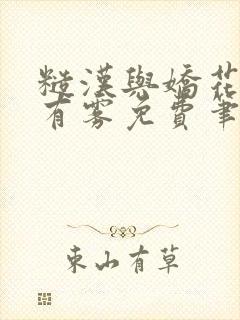 糙漢與嬌花
有霧免費筆
東山有草